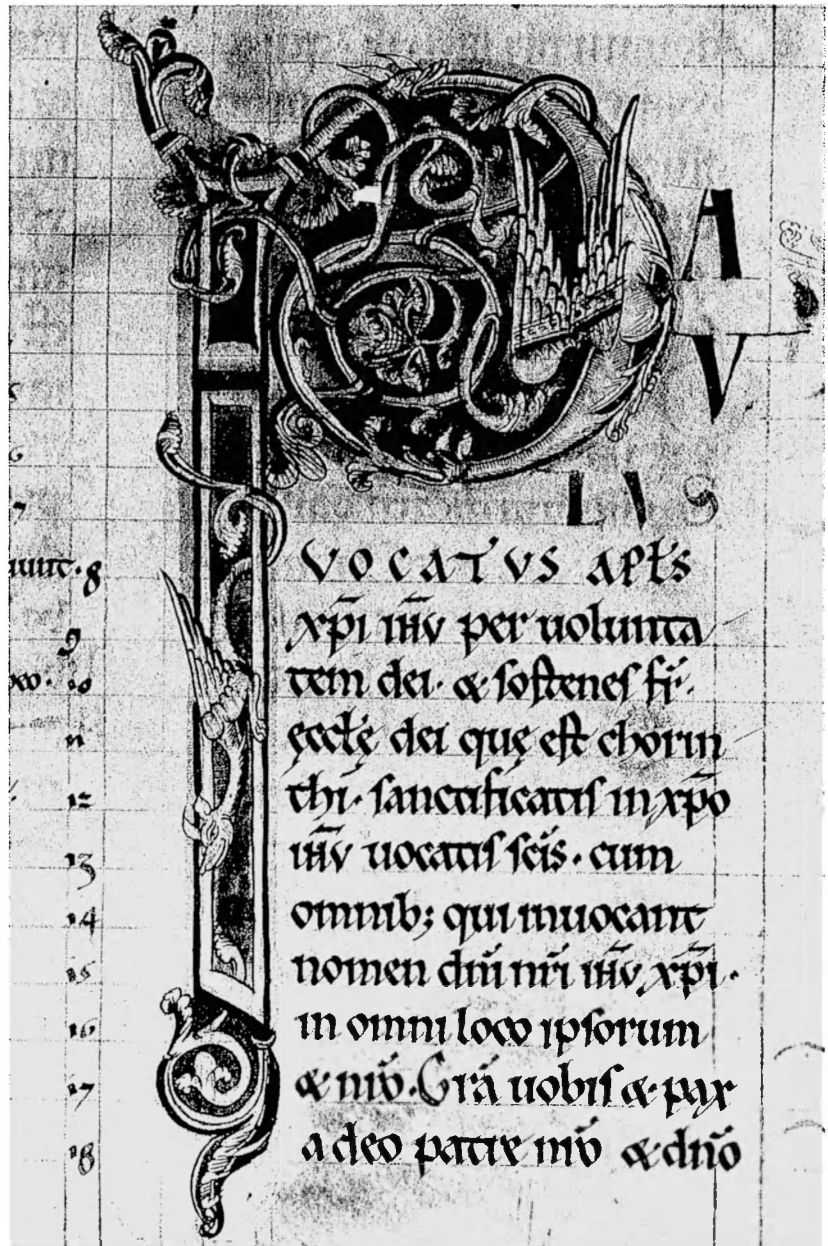 P
A
V
LVS
VOCATVS APL̄S
xp̄i ih̄v per uolunta
tem dei· & sostenes fr̄·
ęccl̄ę dei quę est chorin
thi· sanctificatis in xp̄o
ih̄v uocatis sc̄is· cum
omnib; qui inuocant
nomen dn̄i nr̄i ih̄v xp̄i·
in omni loco ipsorum
& nr̄o· Gr̄a uobis & pax
a deo patre nr̄o & dn̄o
7
uunt· 8
9
10
11
12
13
14
15
16
17
18